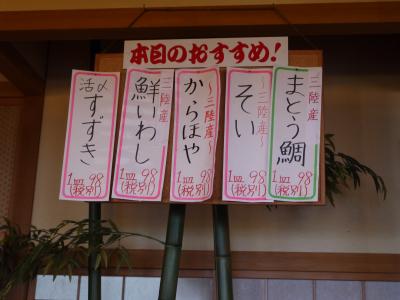 本日のおすすめ!
三陸産
まとう鯛
1皿98
(税別)
〜三陸産〜
そい
1皿98
(税別)
〜三陸産〜
からほや
1皿98
(税別)
三陸産
鮮いわし
1皿98
(税別)
活〆
すずき
1皿98
(税別)